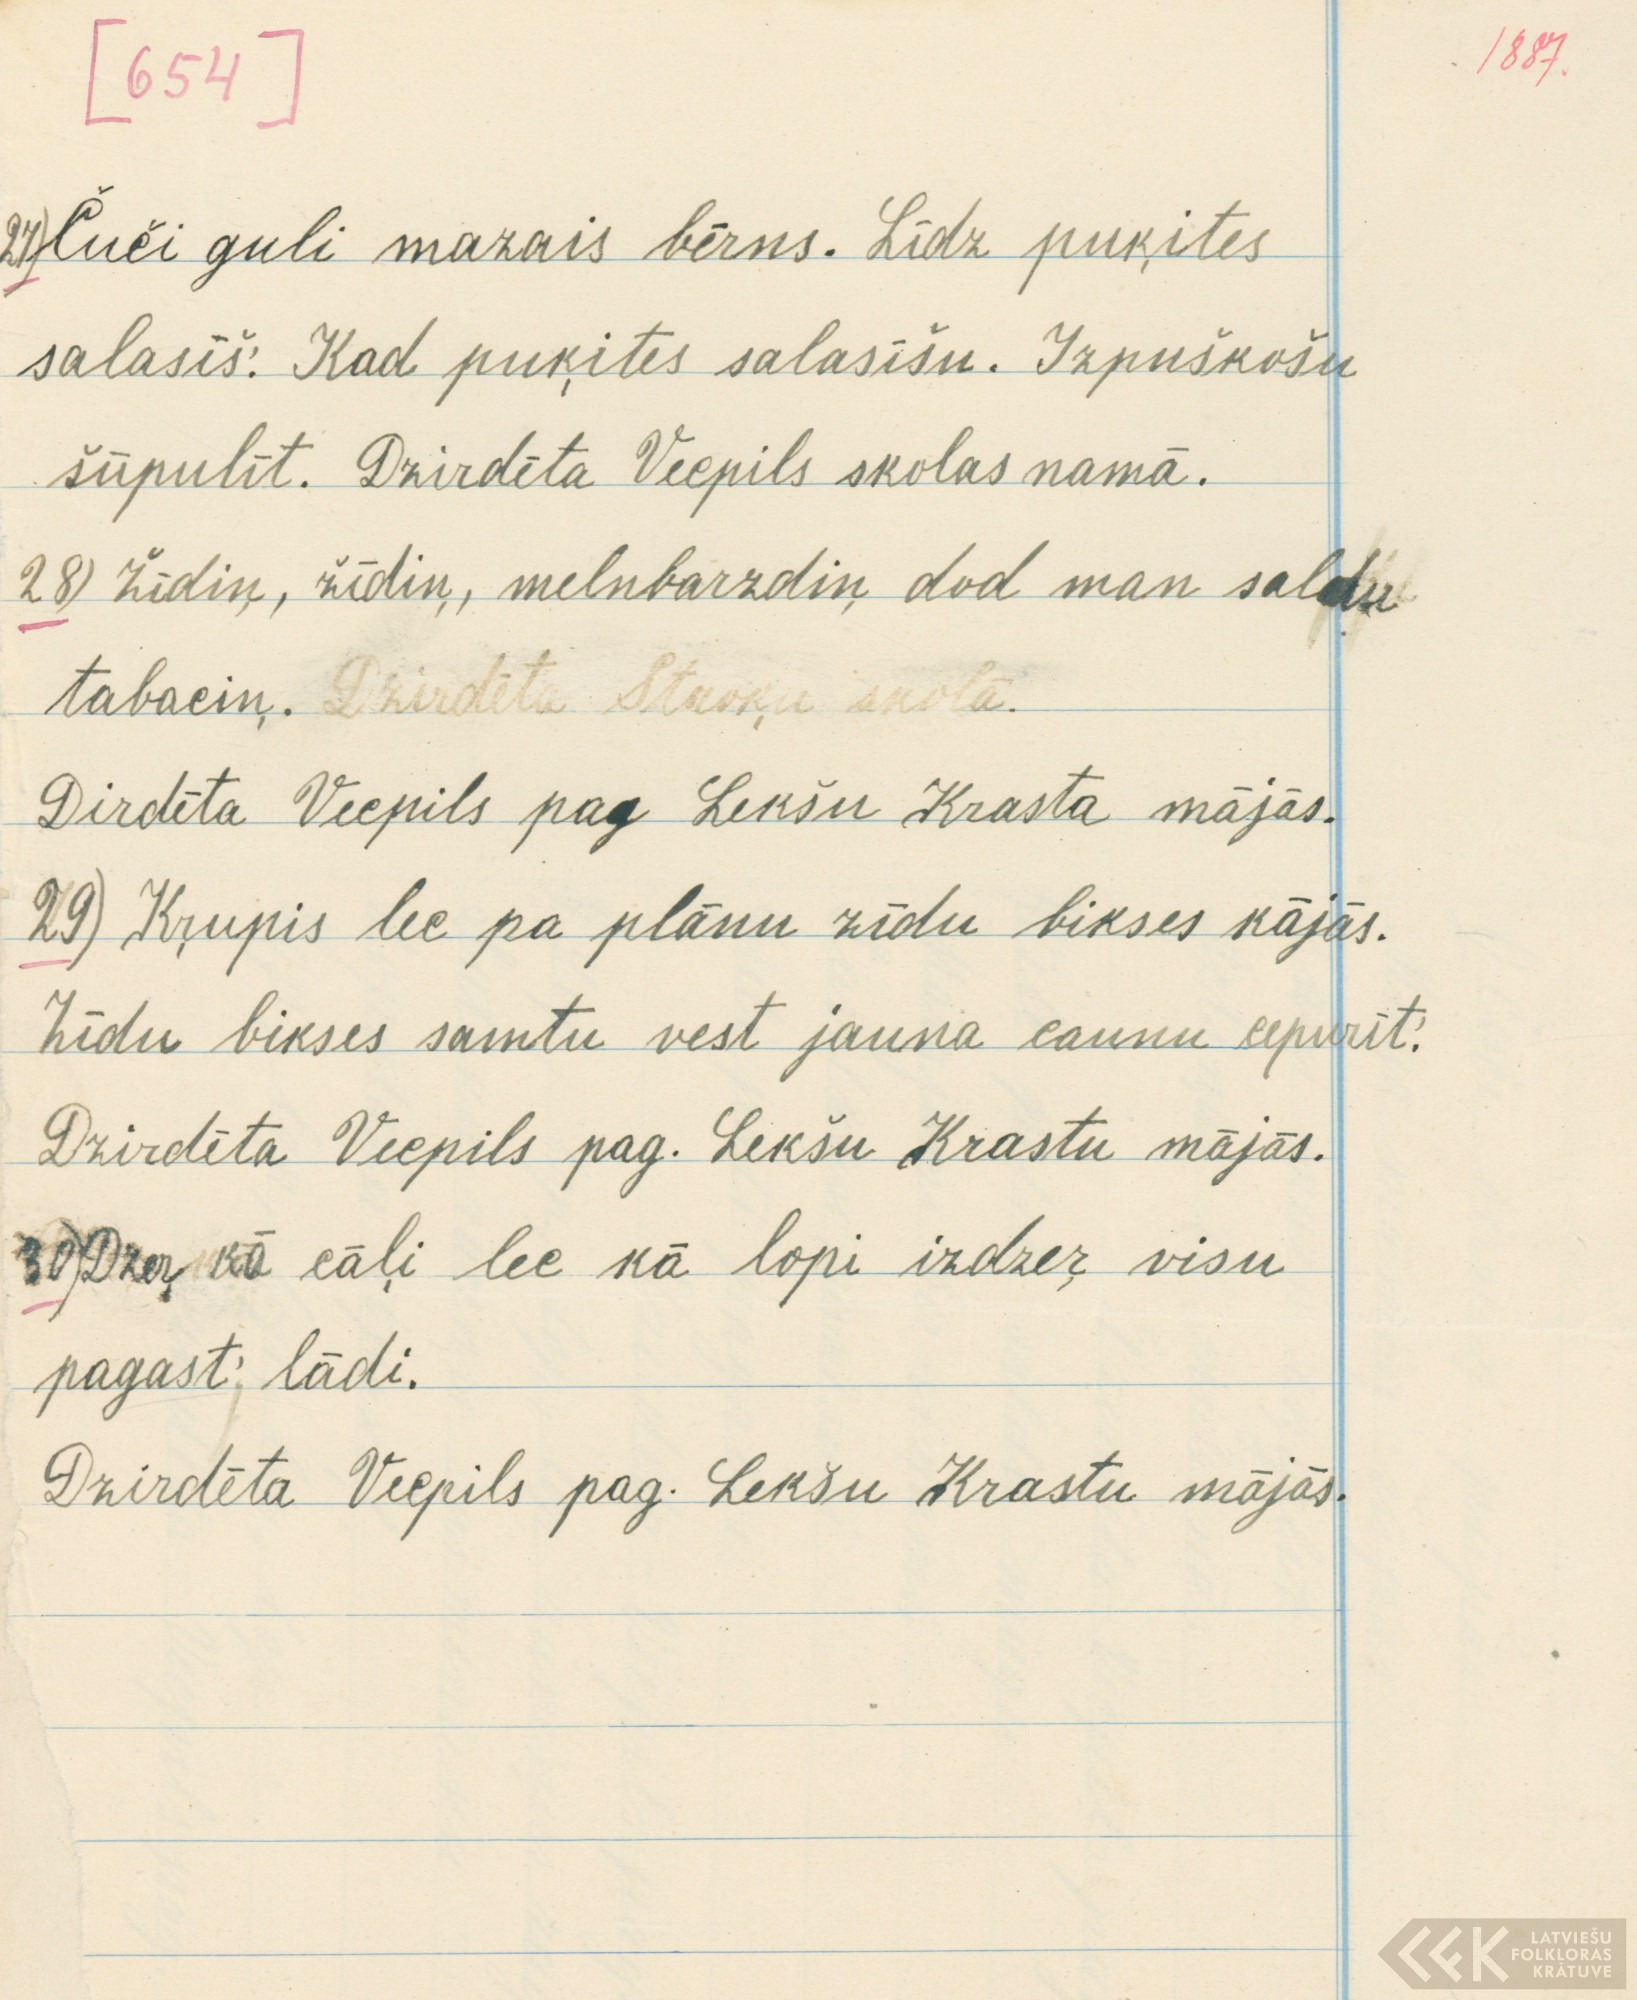 [654]
1887.
27) Čuči guli mazais bērns. Līdz puķites
salasīš'. Kad puķites salasīšu. Izpuškošu
šūpulīt. Dzirdēta Vecpils skolas namā.
28) Žīdiņ, žīdiņ, melnbarzdiņ dod man saldu
tabaciņ. Dzirdēta skolā.
Dirdēta Vecpils pag Lekšu Krasta mājās.
29) Kŗupis lec pa plānu zīdu bikses kājās.
Zīdu bikses samtu vest jauna caunu cepurīt'.
Dzirdēta Vecpils pag. Lekšu Krastu mājās.
30) Dzeŗ kā cāļi lec kā lopi izdzeŗ visu
pagast' lādi.
Dzirdēta Vecpils pag. Lekšu Krastu mājās.
LATVIEŠU
FOLKLORAS
KRĀTUVE